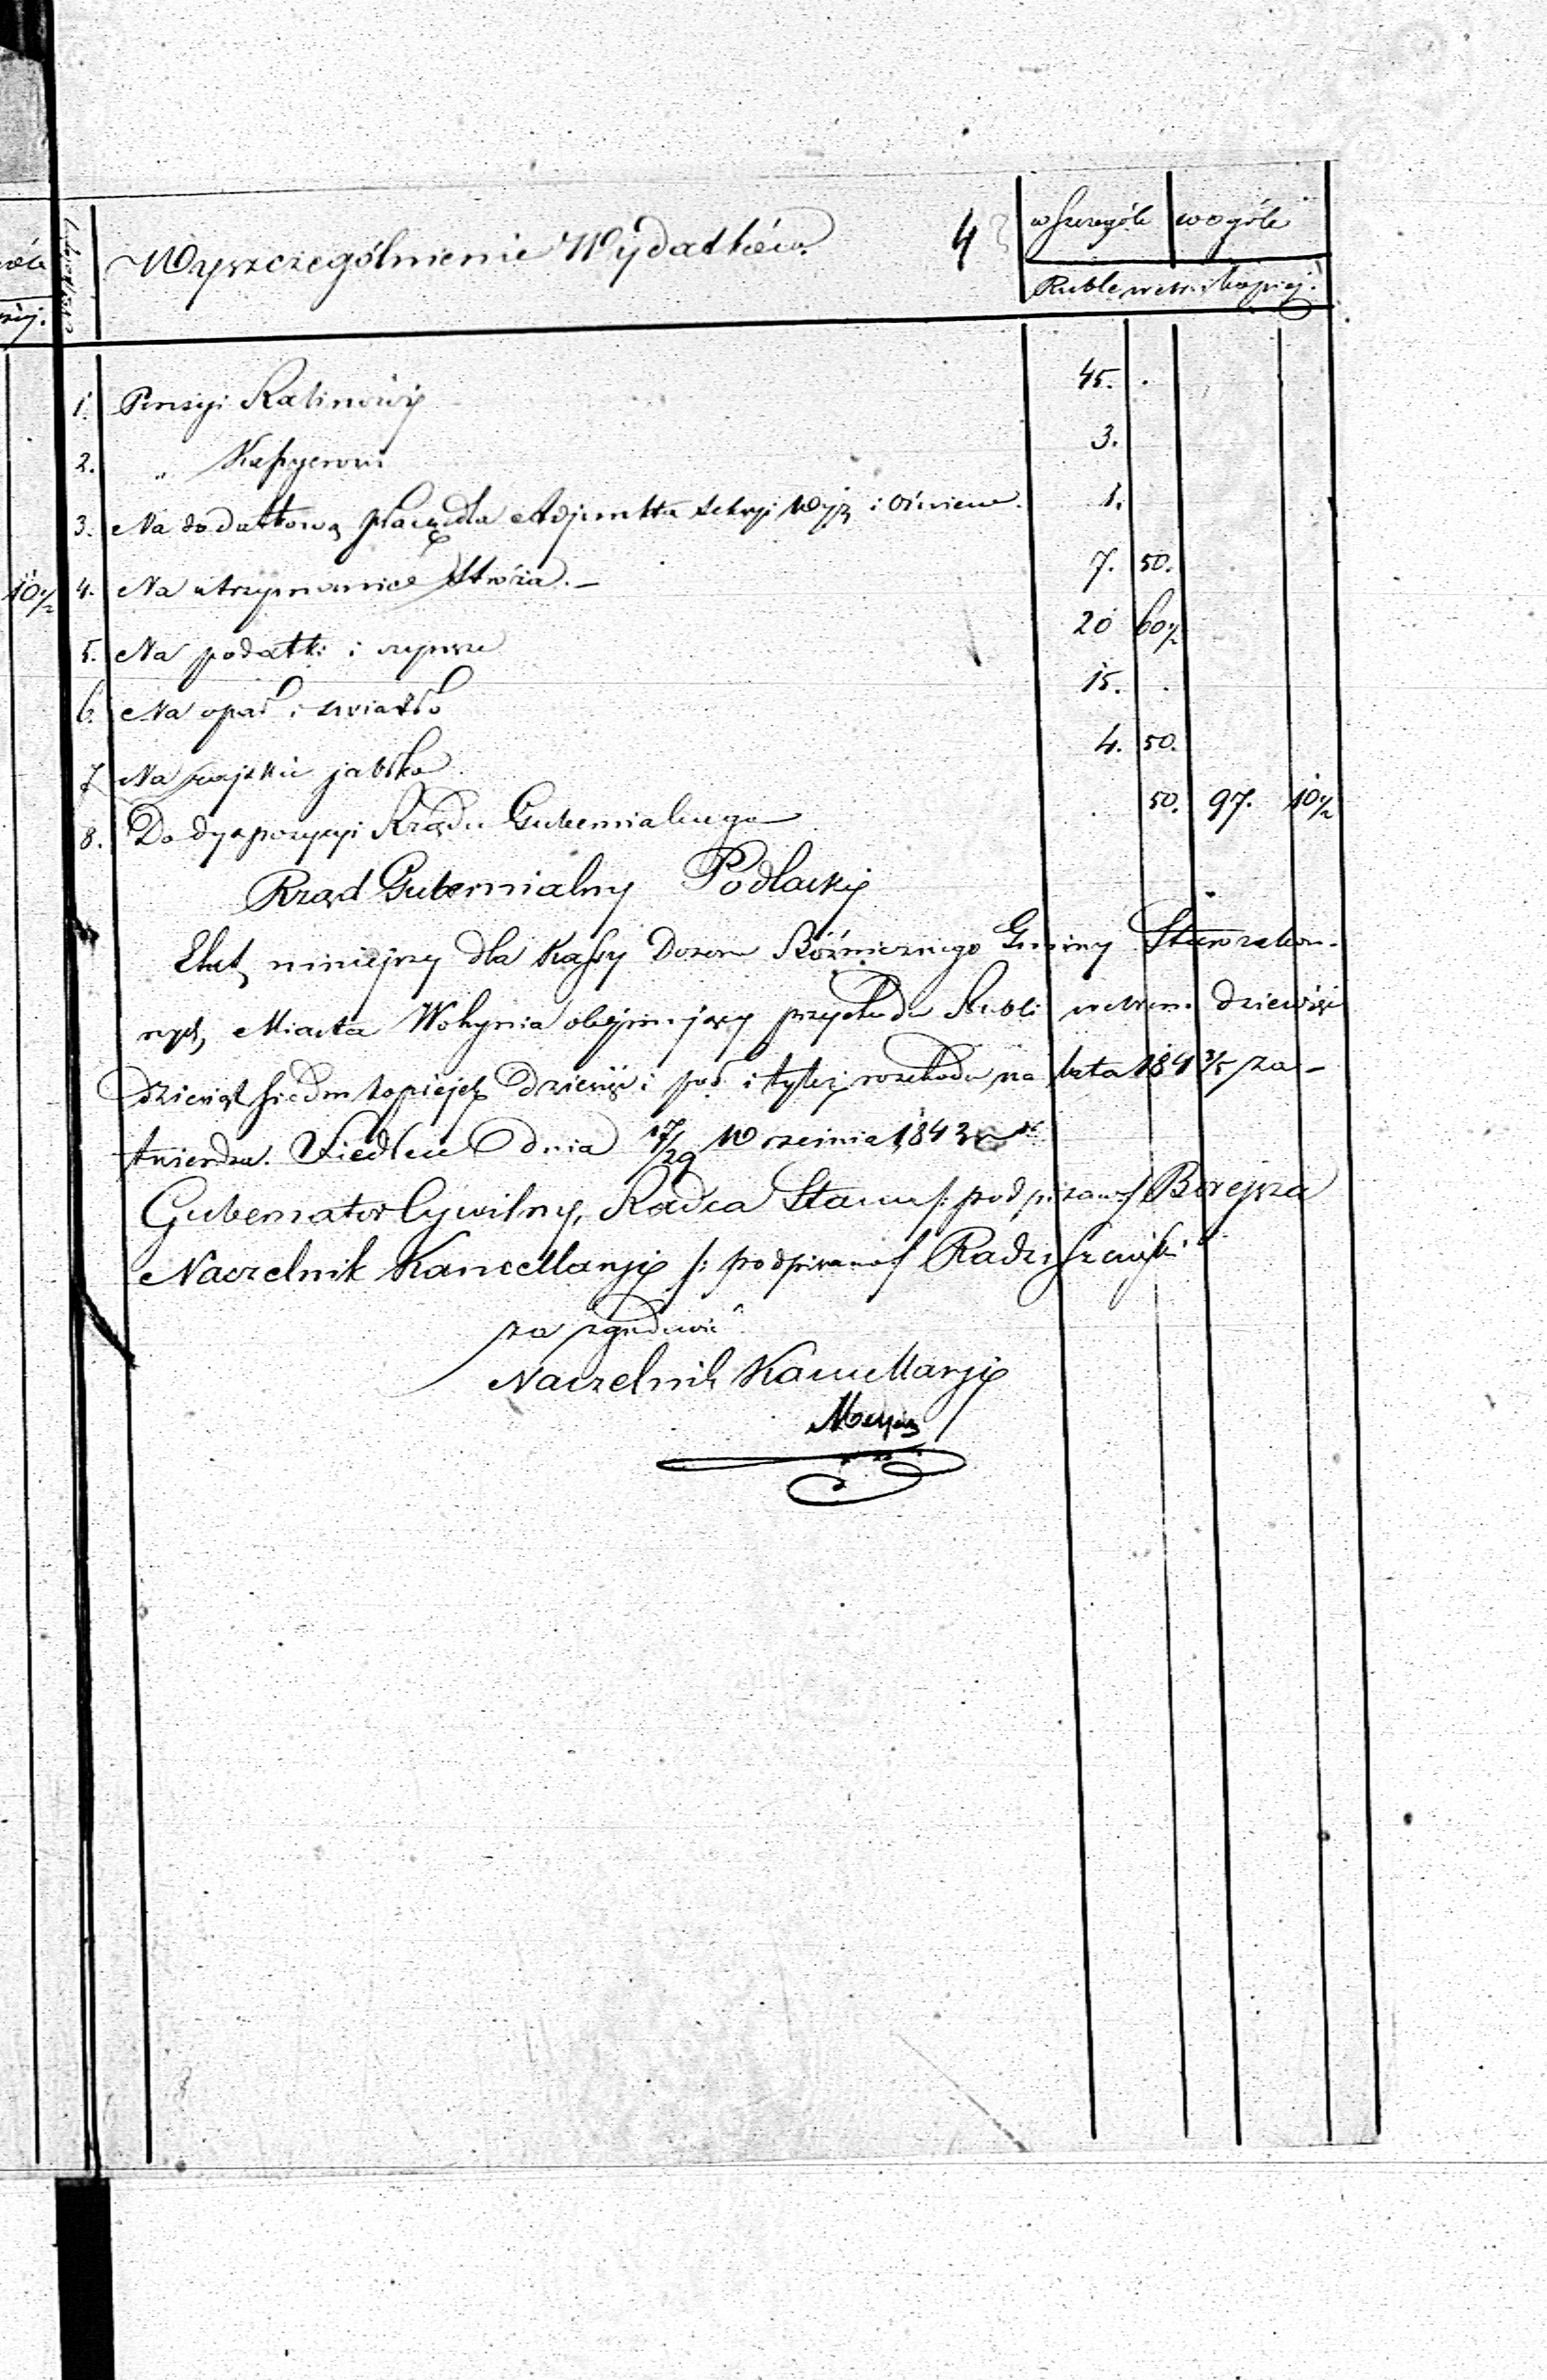 Wyszczególnienie Wydatków. 4 w szczególe wogóle
Ruble srebr. i kopiej.
1. Pensyi Rabinowi 45. .
2. „ Kassyerowi 3.
3. Na dodatkową płacę dla Adjunkta Sekcyi Wyz i Oświece. 1.
10½ 4. Na utrzymanie Stróża. – 7. 50.
5. Na podatki i czynsze 20 60½
6. Na opał i światło 15. .
7 Na rajskie jabłka 4. 50.
8. Do dyspozycyi Rządu Gubernialnego . 50. 97. 10½
Rząd Gubernialny Podlaski
Etat niniejszy dla Kassy Dozoru Bóżnicznego Gminy Starozakon-
nych Miasta Wohynia obejmujący przychodu Rubli srebrem dziewięć
dziesiąt siedm kopiejek dziesięć i poł i tyleż rozchodu na lata 184 3/5 za-
twierdza. Siedlce dnia 17/29 Września 1843 r
Gubernator Cywilny, Radca Stanu /: podpisano / Borejsza
Naczelnik Kancellaryi /: podpisano / Radziszewski
za zgodność
Naczelnik Kancellaryi